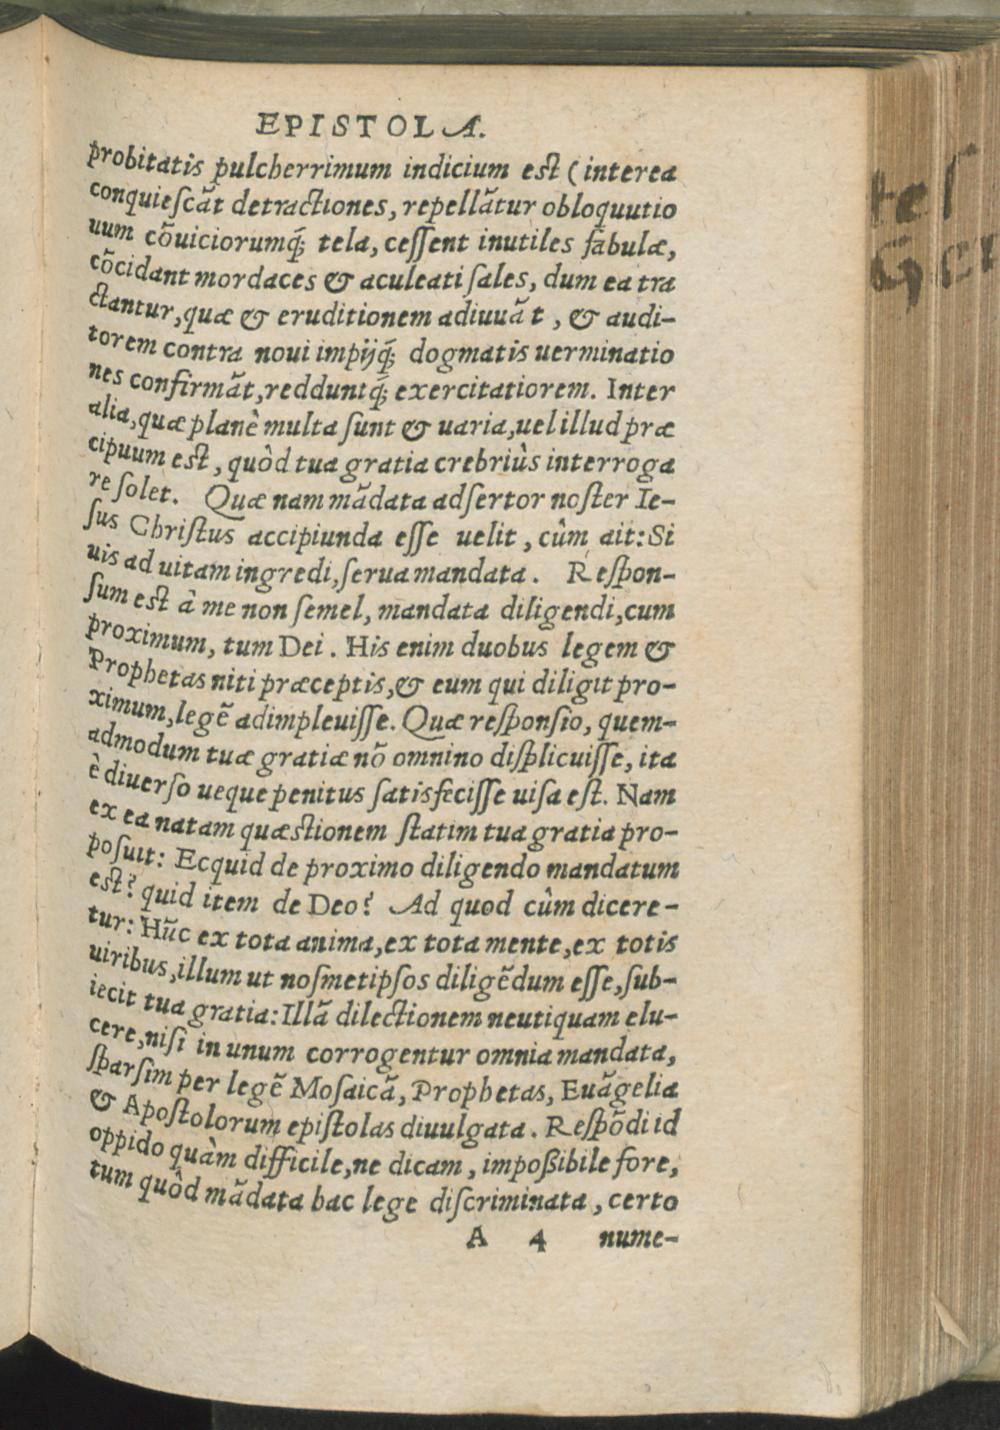 EPISTOLA.
probitatis pulcherrimum indicium est (interea
conquieſcãt detractiones, repellãtur obloquutio
uum cõuiciorumq́; tela, ceſſent inutiles fabulæ,
cõcidant mordaces & aculeati ſales, dum ea tra
ctantur, quæ & eruditionem adiuuãt, & audi-
torem contra noui impijq́; dogmatis uerminatio
nes confirmãt, redduntq́; exercitatiorem. Inter
alia, quæ planè multa ſunt & uaria, uel illud præ
cipuum est, quôd tua gratia crebriùs interroga
re ſolet. Quæ nam mãdata adſertor noſter Ie-
ſus Chriſtus accipiunda eſſe uelit, cûm ait: Si
uis ad uitam ingredi, ſerua mandata. Reſpon-
ſum est â me non ſemel, mandata diligendi, cum
proximum, tum Dei. His enim duobus legem &
Prophetas niti præceptis, & eum qui diligit pro-
ximum, legẽ adimpleuiſſe. Quæ reſponſio, quem-
admodum tuæ gratiæ nõ omnino diſplicuiſſe, ita
è diuerſo ueque penitus ſatisfeciſſe uiſa eſt. Nam
ex ea natam quæstionem ſtatim tua gratia pro-
poſuit: Ecquid de proximo diligendo mandatum
est? quid item de Deo? Ad quod cûm dicere-
tur: Hũc ex tota anima, ex tota mente, ex totis
uiribus, illum ut noſmetipſos diligẽdum eſſe, ſub-
iecit tua gratia: Illã dilectionem neutiquam elu-
cere, niſi in unum corrogentur omnia mandata,
ſparſim per legẽ Moſaicã, Prophetas, Euãgelia
& Apoſtolorum epiſtolas diuulgata. Reſpõdi id
oppido quàm difficile, ne dicam, impoßibile fore,
tum quôd mãdata hac lege diſcriminata, certo
A 4 nume-
tel